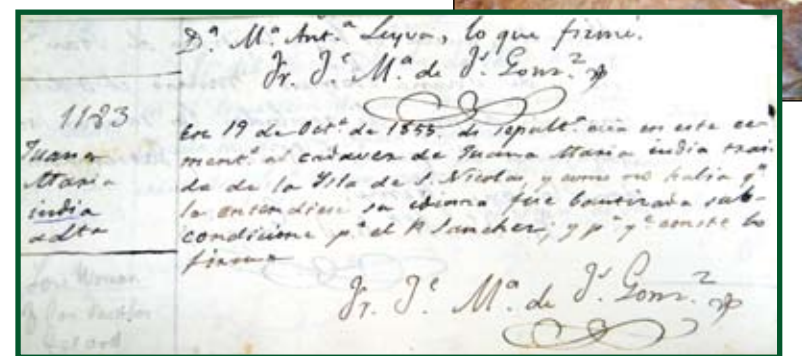 Dª. Mª. Antª. Leyva, lo que firmé.
Fr. Jᵉ. Mª. de Jˢ. Gonzᶻ.
1183
Juana
Maria
india
adlta
En 19 de Octᵉ. de 1853. di sepultª. ecca en este ce
mentº. al cadaver de Juana Maria india trai
da de la Ysla de S. Nicolas, y como no habia qⁿ.
la entendiese su idioma fue bautizada sub-
condicione pʳ. el P. Sanchez; y pª. qᵉ. conste lo
firmo
Fr. Jᵉ. Mª. de Jˢ. Gonzᶻ.
Lone Woman
of San Nicolas